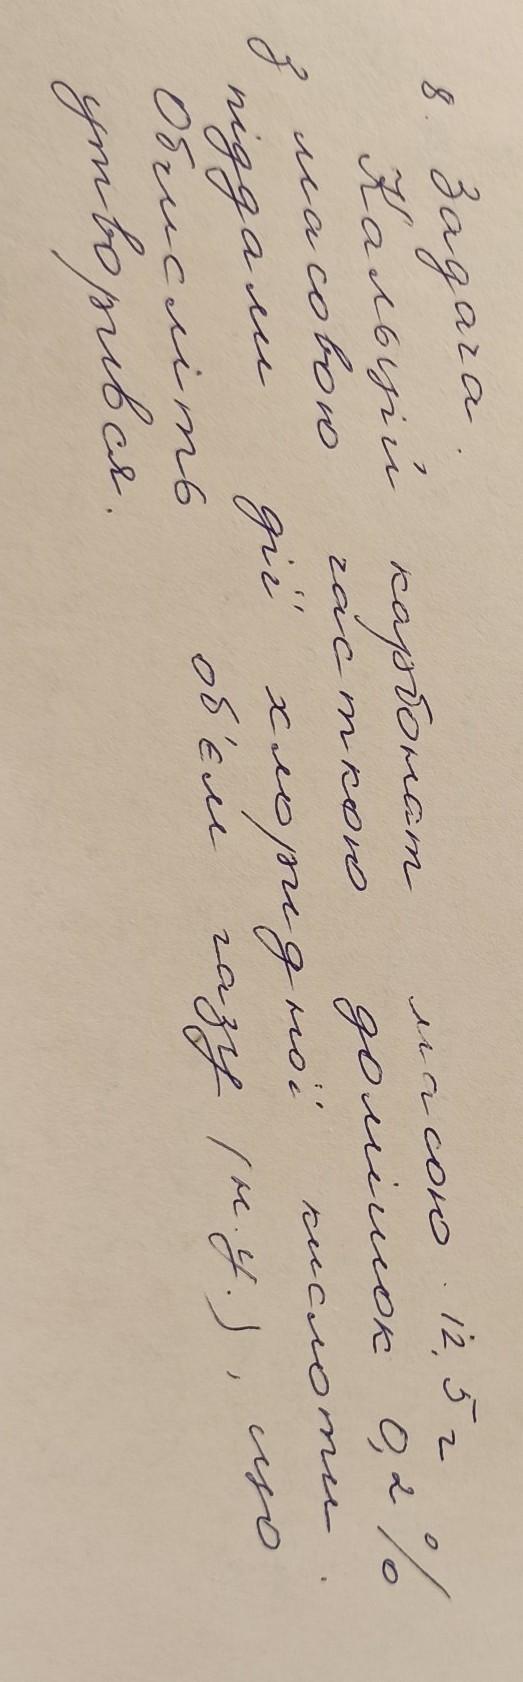 8. Задача.
Кальцій карбонат масою 12,5 г
з масовою часткою домішок 0,2%
піддали дії хлоридної кислоти.
Обчисліть об'єм газу (н.у.), що
утворився.